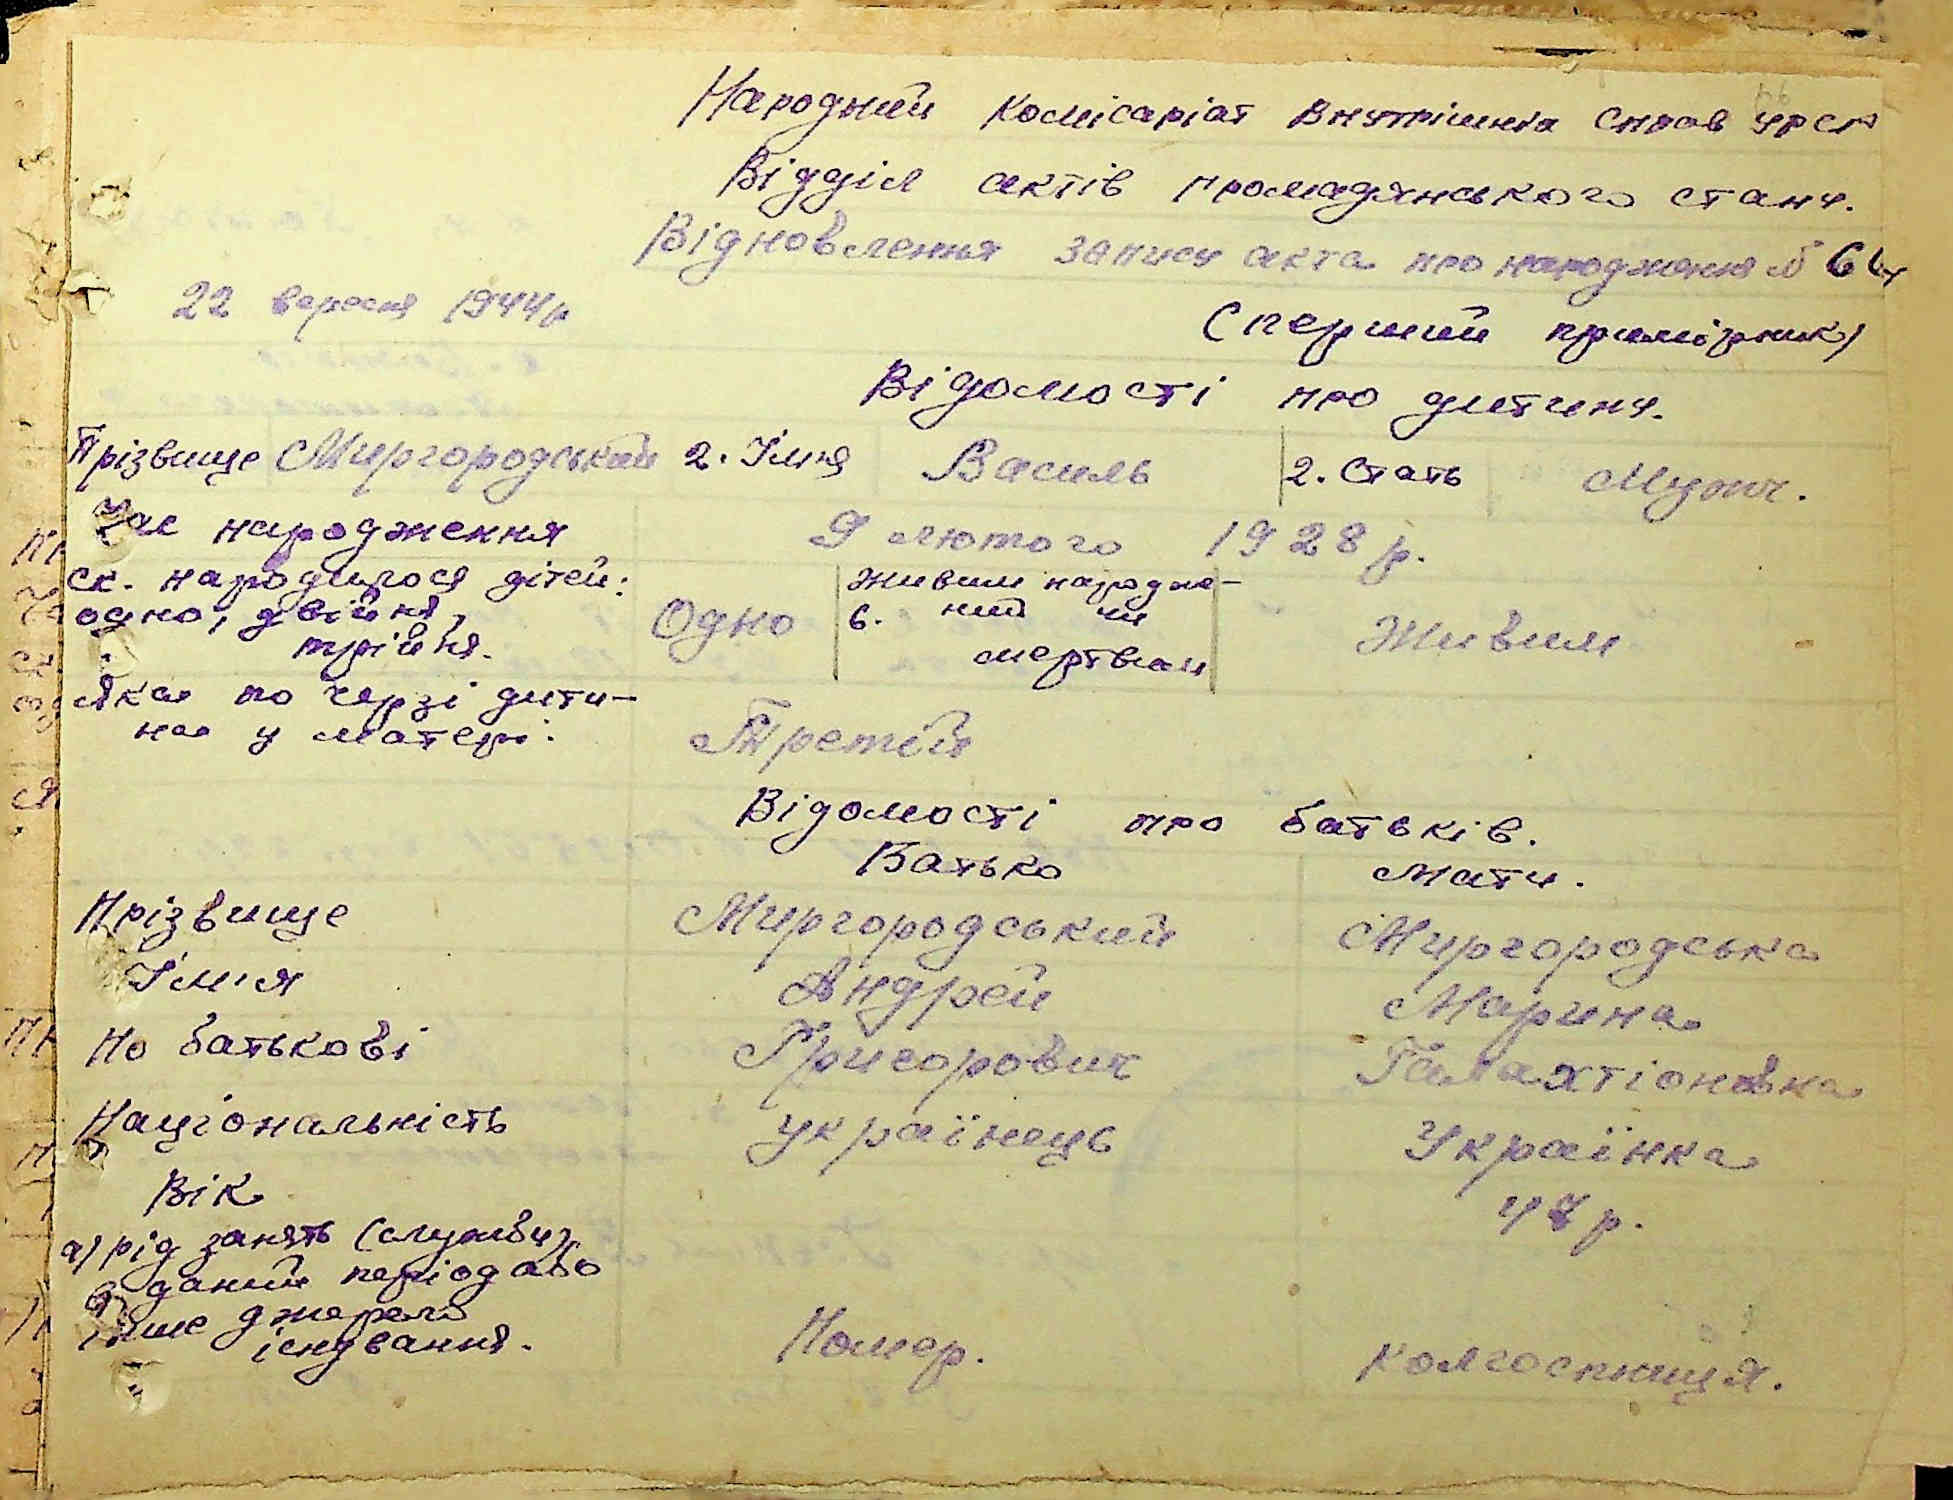 Народний Комісаріат Внутрішніх Справ УРСР
Відділ актів громадянського стану.
Відновлення запису акта про народження №
22 вересня 1944 р
(перший примірник)
Відомості про дитину.
Прізвище Миргородський 2. Ім'я Василь 2. Стать Мужч.
Час народження 9 лютого 1928 р.
ск. народилося дітей: одно, двійня, трійня. Одно 6. Живим народже-ний чи мертвим Живим
Яка по черзі дити-
на у матері. Третій
Відомості про батьків.
Батько Мати.
Прізвище Миргородський Миргородська
Ім'я Андрей Марина
По батькові Григорович Галахтіоновка
Національність Українець Українка
Вік 47 р.
а) рід занять (служби)
в даний період або
інше джерело
існування. Помер. колгоспниця.